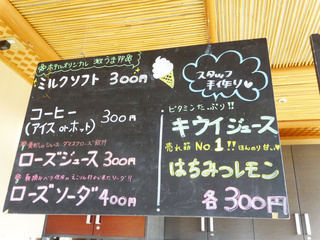 ホテルオリジナル 激うま!!
ミルクソフト 300円
コーヒー
(アイス or ホット) 300円
ローズジュース 300円
ローズソーダ 400円
スタッフ
手作り♡
ビタミンたっぷり!!
キウイジュース
売れ筋 No 1!! ほんのり甘〜い♥
はちみつレモン
各 300円